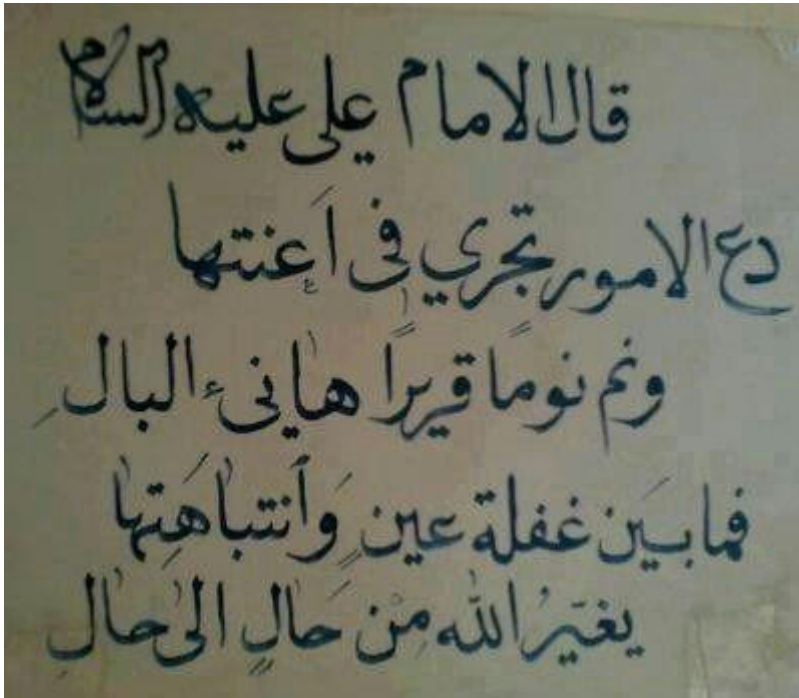 قال الامام علي عليه السلام
دع الامور تجري في اَعنتها
ونم نومًا قريرًا هانىء البالِ
فما بَين غفلة عينٍ وَٱنتباهَتِها
يغيّرُ الله مِنْ حَالٍ الى حالِ